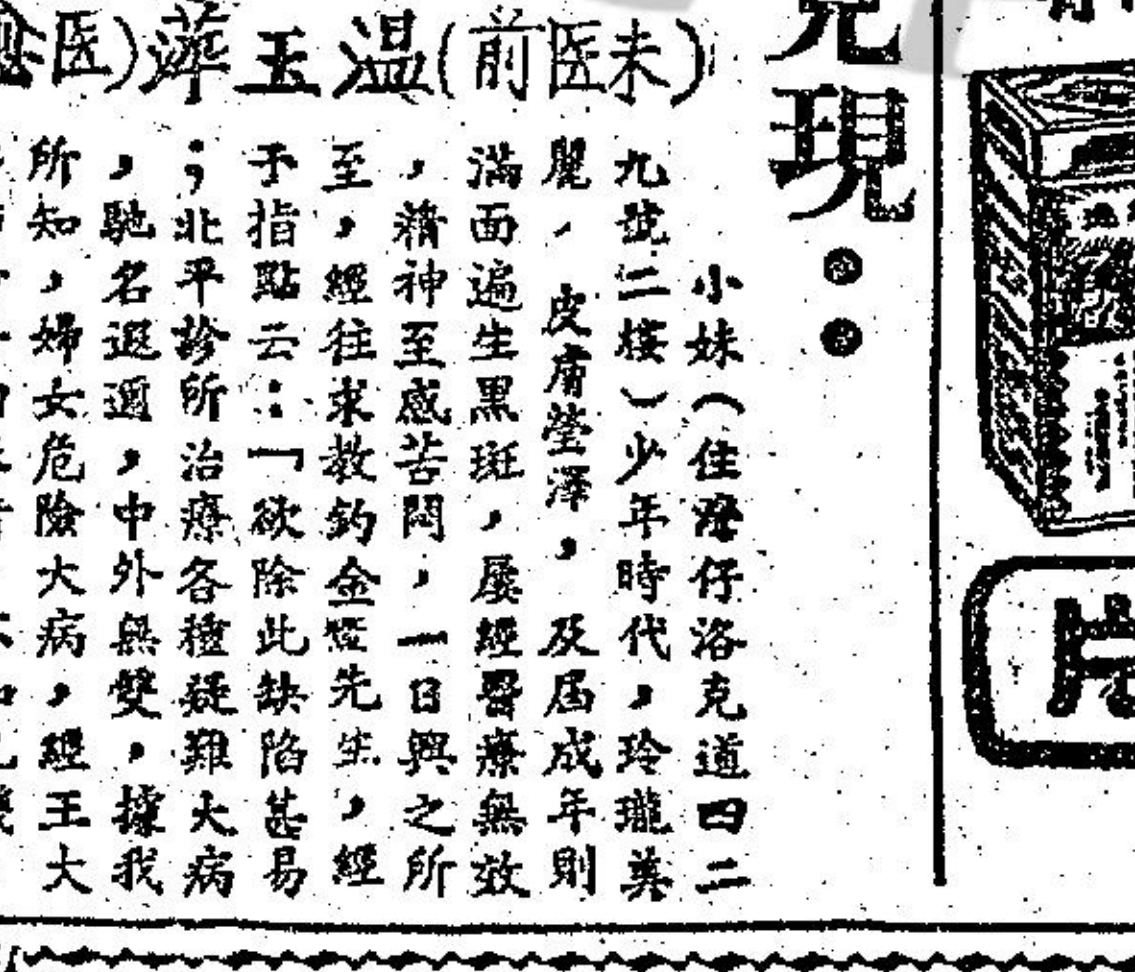 (未医前)溫玉萍(医
現
小妹(住灣仔洛克道四二
九號二樓)少年時代,玲瓏美
麗,皮膚瑩澤,及屆成年則
滿面遍生黑斑,屢經醫療無效
,精神至感苦悶,一日興之所
至,經往求教釣金鰲先生,經
予指點云:「欲除此缺陷甚易
;北平診所治療各種疑難大病
,馳名遐邇,中外無雙,據我
所知,婦女危險大病,經王大
片